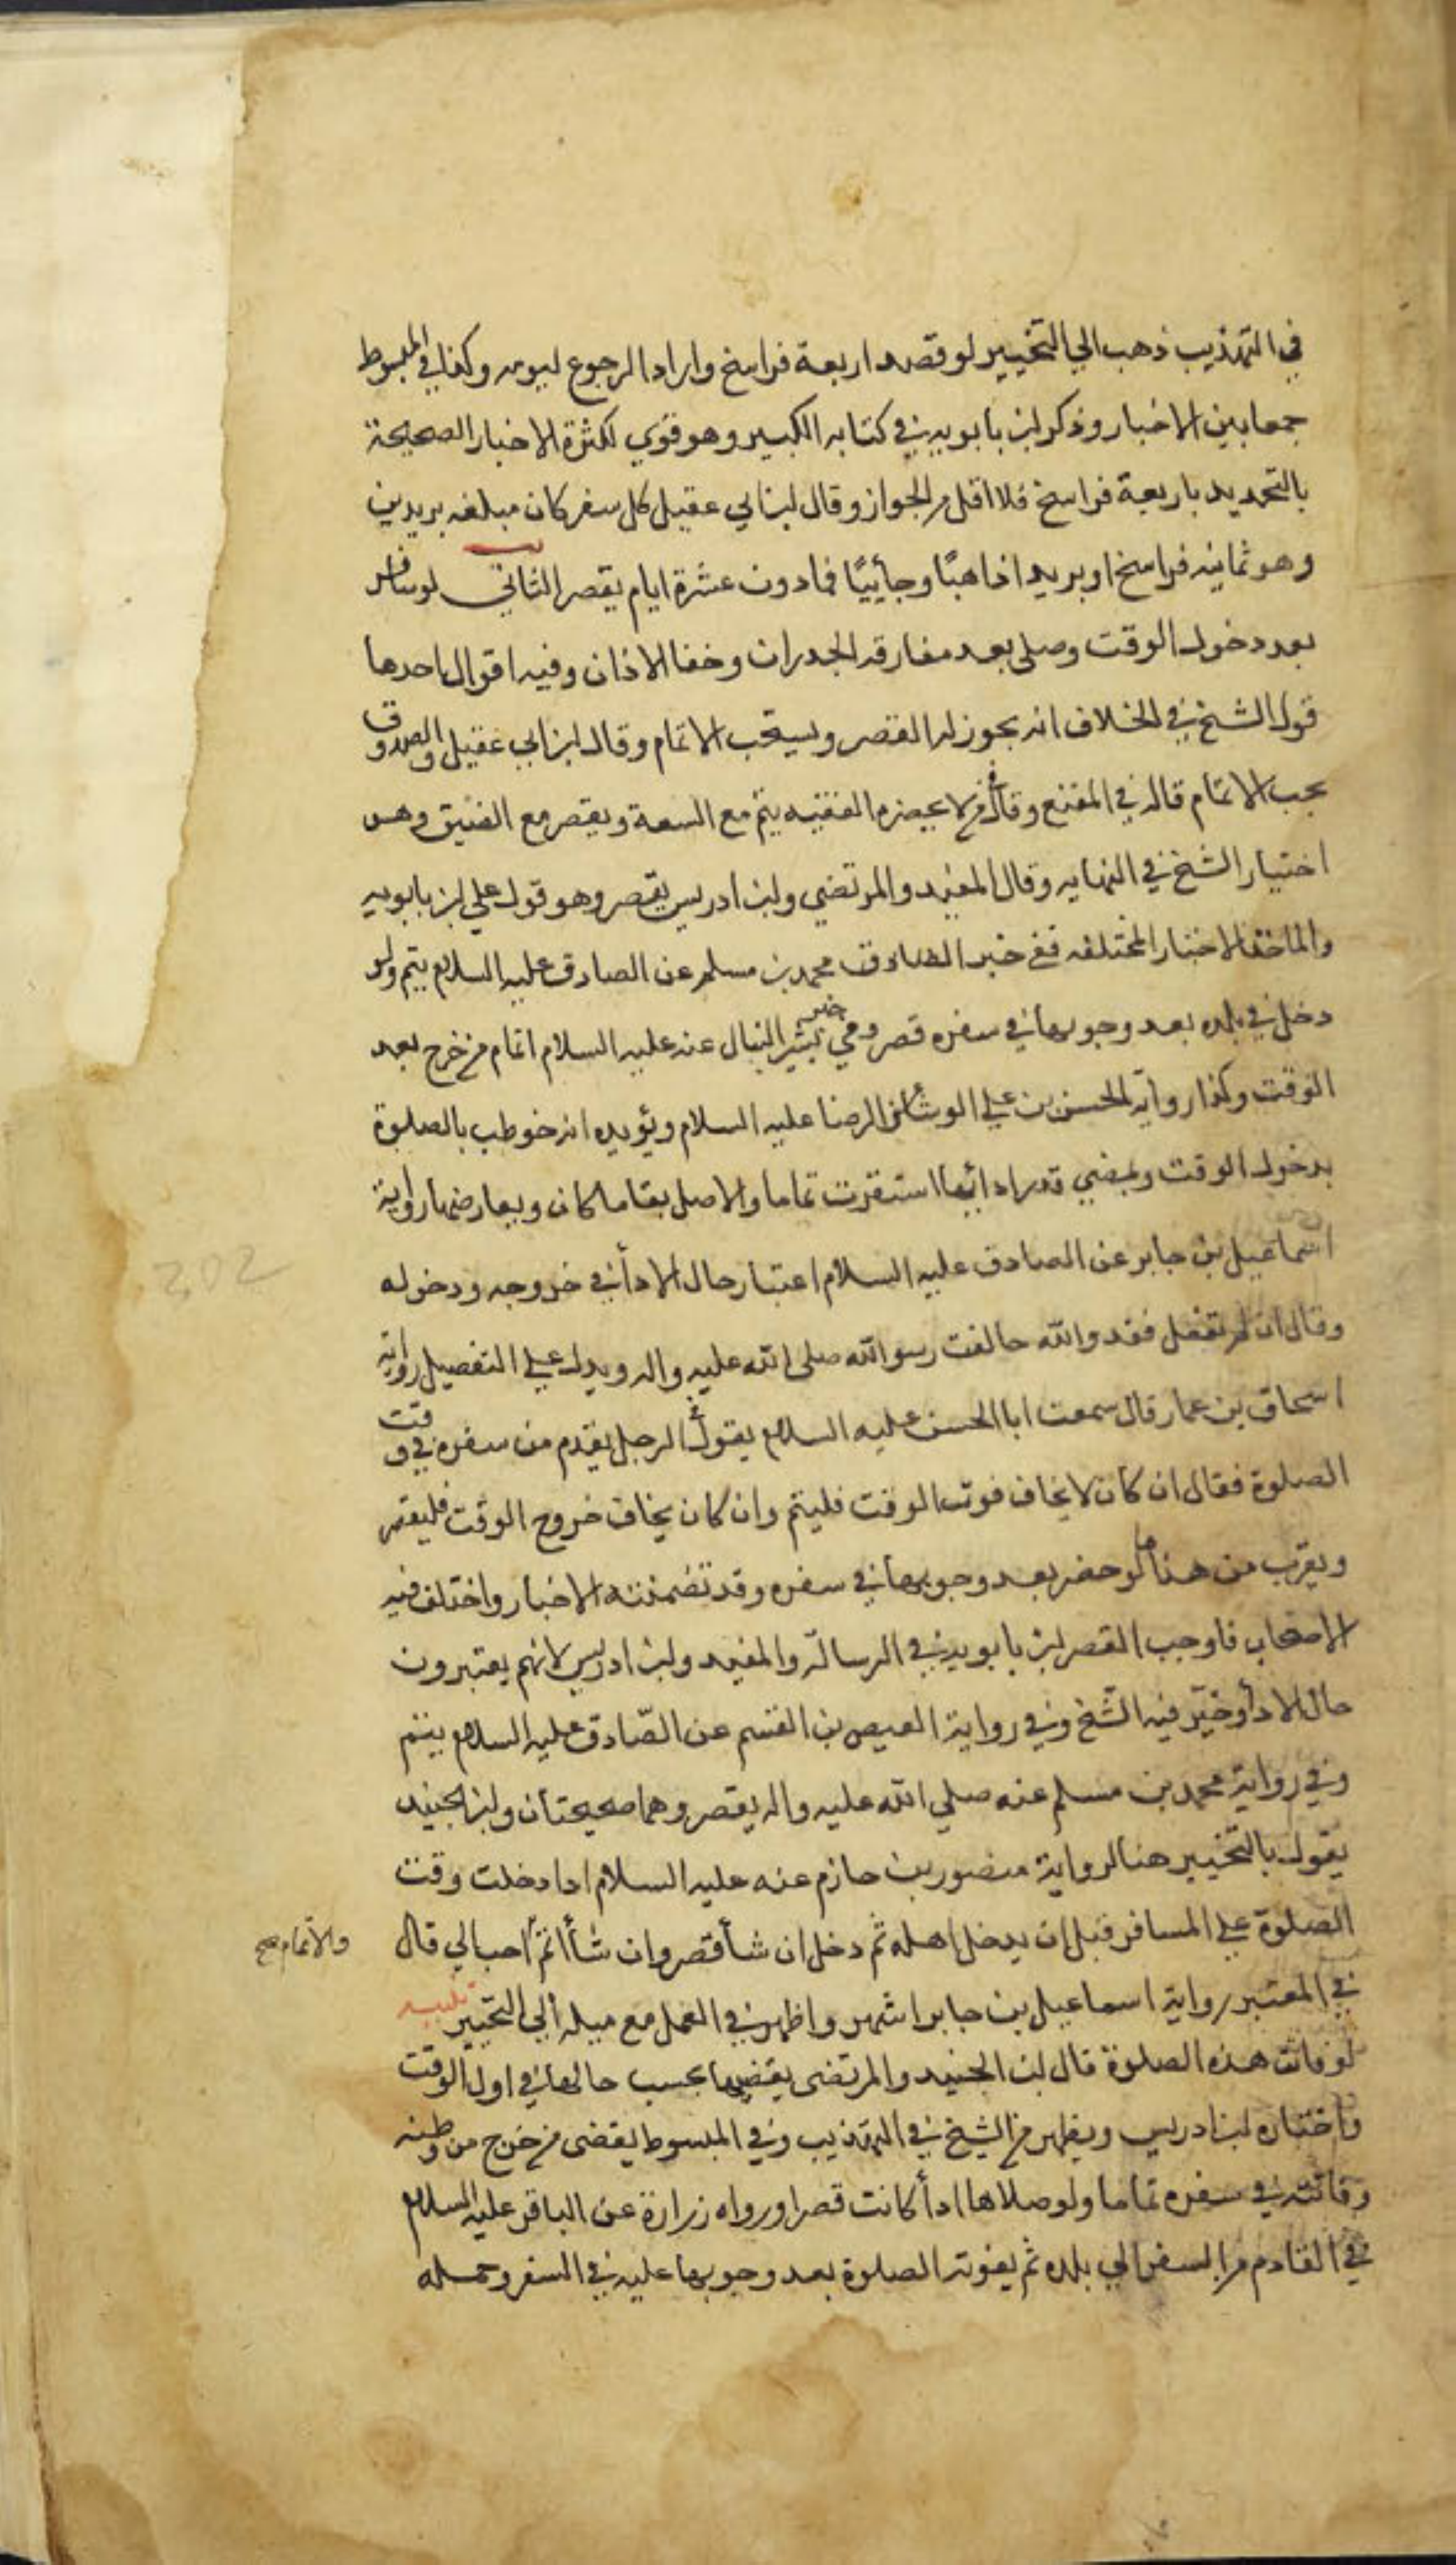 في التهذيب ذهب الي التخيير لو قصد اربعة فراسخ واراد الرجوع ليومه وكذا في المبسوط
جمعا بين الاخبار وذكر ابن بابويه في كتابه الكبير وهو قوي لكثرة الاخبار الصحيحة
بالتحديد باربعة فراسخ فلا اقل من الجواز وقال ابن ابي عقيل كل سفر كان مبلغه بريدين
وهو ثمانية فراسخ او بريد اذاهبًا وجأييًا فما دون عشرة ايام يقصر الثاني لو سافر
بعد دخول الوقت وصلى بعد مفارقه الجدران وخفا الاذان وفيه اقوال احدها
قول الشيخ في الخلاف انه يجوز له القصر ويستحب الاتمام وقال ابن ابي عقيل والصدوق
يجب الاتمام قاله في المقنع وقال في من لا يحضره الفقيه يتم مع السعة ويقصر مع الضيق وهو
اختيار الشيخ في النهايه وقال المفيد والمرتضي وابن ادريس يقصر وهو قول علي ابن بابويه
والماخذ الاخبار المختلفه ففي خبر محمد بن مسلم عن الصادق عليه السلام يتم ولو
دخل في بلده بعد وجوبها في سفره قصر وفي خبر بشير النبال عنه عليه السلام اتمام من خرج بعد
الوقت وكذا رواية الحسن بن علي الوشا عن الرضا عليه السلام ويؤيده انه خوطب بالصلوة
بدخول الوقت وبمضي قدر ادائها استقرت تماما والاصل بقا ما كان ويعارضها رواية
اسماعيل بن جابر عن الصادق عليه السلام اعتبار حال الادأ في خروجه ودخوله
وقال ان لم تفعل فقد والله خالفت رسول الله صلى الله عليه واله ويدل علي التفصيل رواية
اسحاق بن عمار قال سمعت ابا الحسن عليه السلام يقول في الرجل يقدم من سفره في وقت
الصلوة فقال ان كان لا يخاف فوت الوقت فليتم وان كان يخاف خروج الوقت فليقصر
ويقرب من هذا ما لو حضر بعد وجوبها في سفره وقد تضمنته الاخبار واختلف فيه
الاصحاب فاوجب القصر ابن بابويه في الرسالة والمفيد وابن ادريس لانهم يعتبرون
حال الادأ وخيّر فيه الشّخ وفي رواية العيص بن القسم عن الصّادق عليه السلام يتم
وفي رواية محمد بن مسلم عنه صلي الله عليه واله يقصر وهما صحيحتان وابن الجنيد
يقول بالتخيير هنا لرواية منصور بن حازم عنه عليه السلام اذا دخلت وقت
الصلوة علي المسافر قبل ان يدخل اهله ثم دخل ان شأ قصر وان شأ اتمّ احب الي قال
والاتمام صح
في المعتبر رواية اسماعيل بن جابر اشهر واظهر في العمل مع ميله الي التخيير تنبيه
لو فاتت هذه الصلوة قال ابن الجنيد والمرتضى يقضيها بحسب حالها في اول الوقت
واختاره ابن ادريس ويظهر من الشيخ في التهذيب وفي المبسوط يقضى من خرج من وطنه
وفاتته في سفره تماما ولو صلاها ادأ كانت قصرا ورواه زرارة عن الباقر عليه السلام
في القادم من السفر الي بلده ثم يفوته الصلوة بعد وجوبها عليه في السفر وحمله